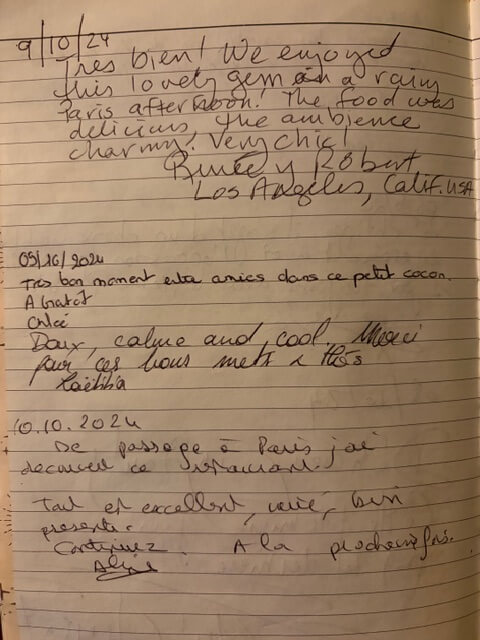 9/10/24
Tres bien! We enjoyed
this lovely gem on a rainy
Paris afternoon! The food was
delicious, the ambience
charmy. Very chic!
Renée y Robert,
Los Angeles, Calif. USA
09/16/2024
Tres bon moment entre amies dans ce petit cocon.
A bientot
Chloé
Doux, calme and cool. Merci
pour ces bons mets & thés
Laëtitia
10.10.2024
De passage à Paris j'ai
découvert ce restaurant.
Tout est excellent, varié, bien
présenté.
Continuez. A la prochaine fois.
Aline